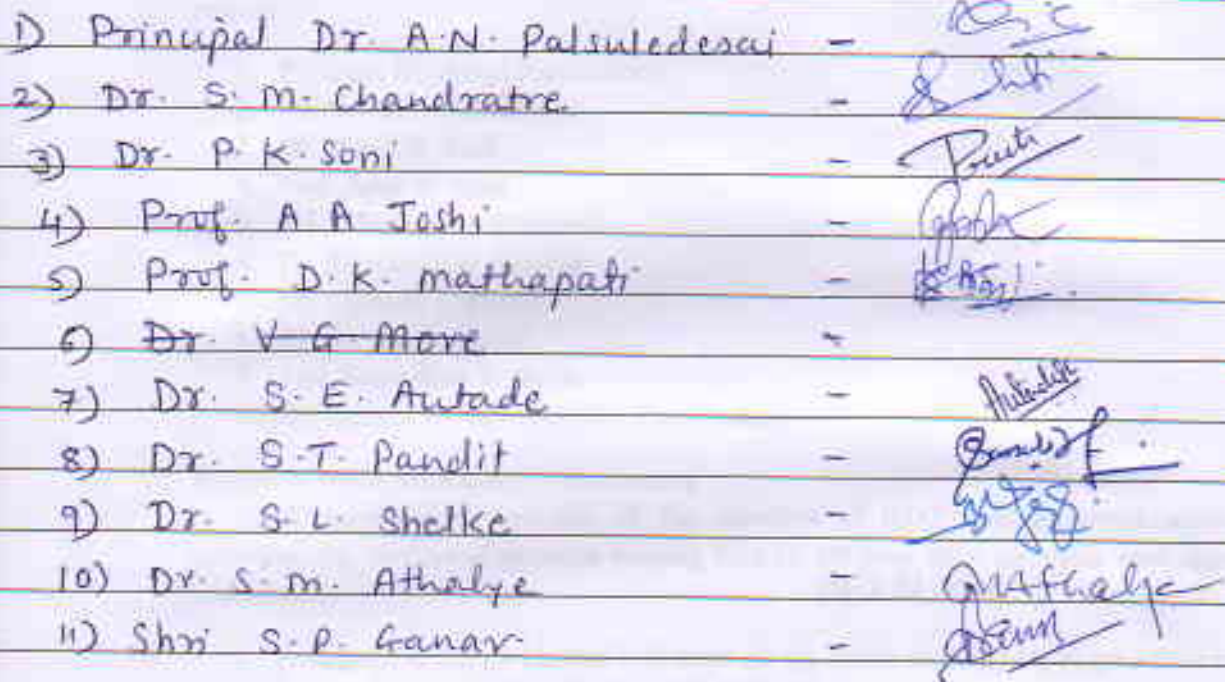 1) Principal Dr. A.N. Palsuledesai -
2) Dr. S. M. Chandratre -
3) Dr. P. K. Soni -
4) Prof. A A Joshi -
5) Prof. D. K. Mathapati -
6) Dr. V G More -
7) Dr. S. E. Autade - Autade
8) Dr. S.T. Pandit -
9) Dr. S. L. Shelke -
10) Dr. S. M. Athalye - SMAthalye
11) Shri S. P. Ganar -